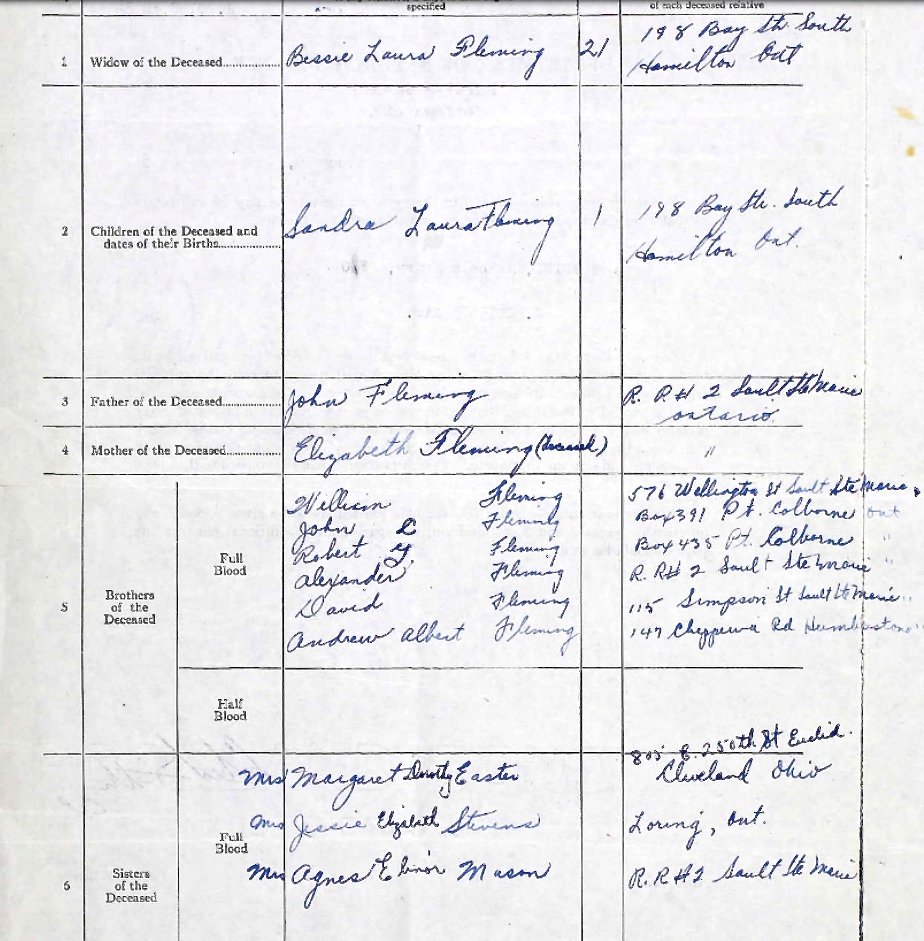 specified
of each deceased relative
1 Widow of the Deceased Bessie Laura Fleming 21 198 Bay St. South
Hamilton Ont
2 Children of the Deceased and Sandra Laura Fleming 1 198 Bay Str. South
dates of their Births Hamilton Ont.
3 Father of the Deceased John Fleming R. R # 2 Sault Ste Marie
ontario
4 Mother of the Deceased Elizabeth Fleming (deceased) "
5 Brothers
of the
Deceased
Full
Blood
Fleming 576 Wellington St Sault Ste Marie
John Fleming Box 391 Pt. Colborne Ont
Robert Fleming Box 435 Pt. Colborne "
Alexander Fleming R. R# 2 Sault Ste Marie "
David Fleming 115 Simpson St Sault Ste Marie "
Andrew Albert Fleming 147 Chippewa Rd
Half
Blood
6 Sisters
of the
Deceased
Full
Blood
Mrs Margaret Dorothy Easter 805 E. 250th St Euclid.
Cleveland Ohio
Mrs Jessie Elizabeth Stevens Loring, Ont.
Mrs Agnes Elinor Mason R. R #2 Sault Ste Marie